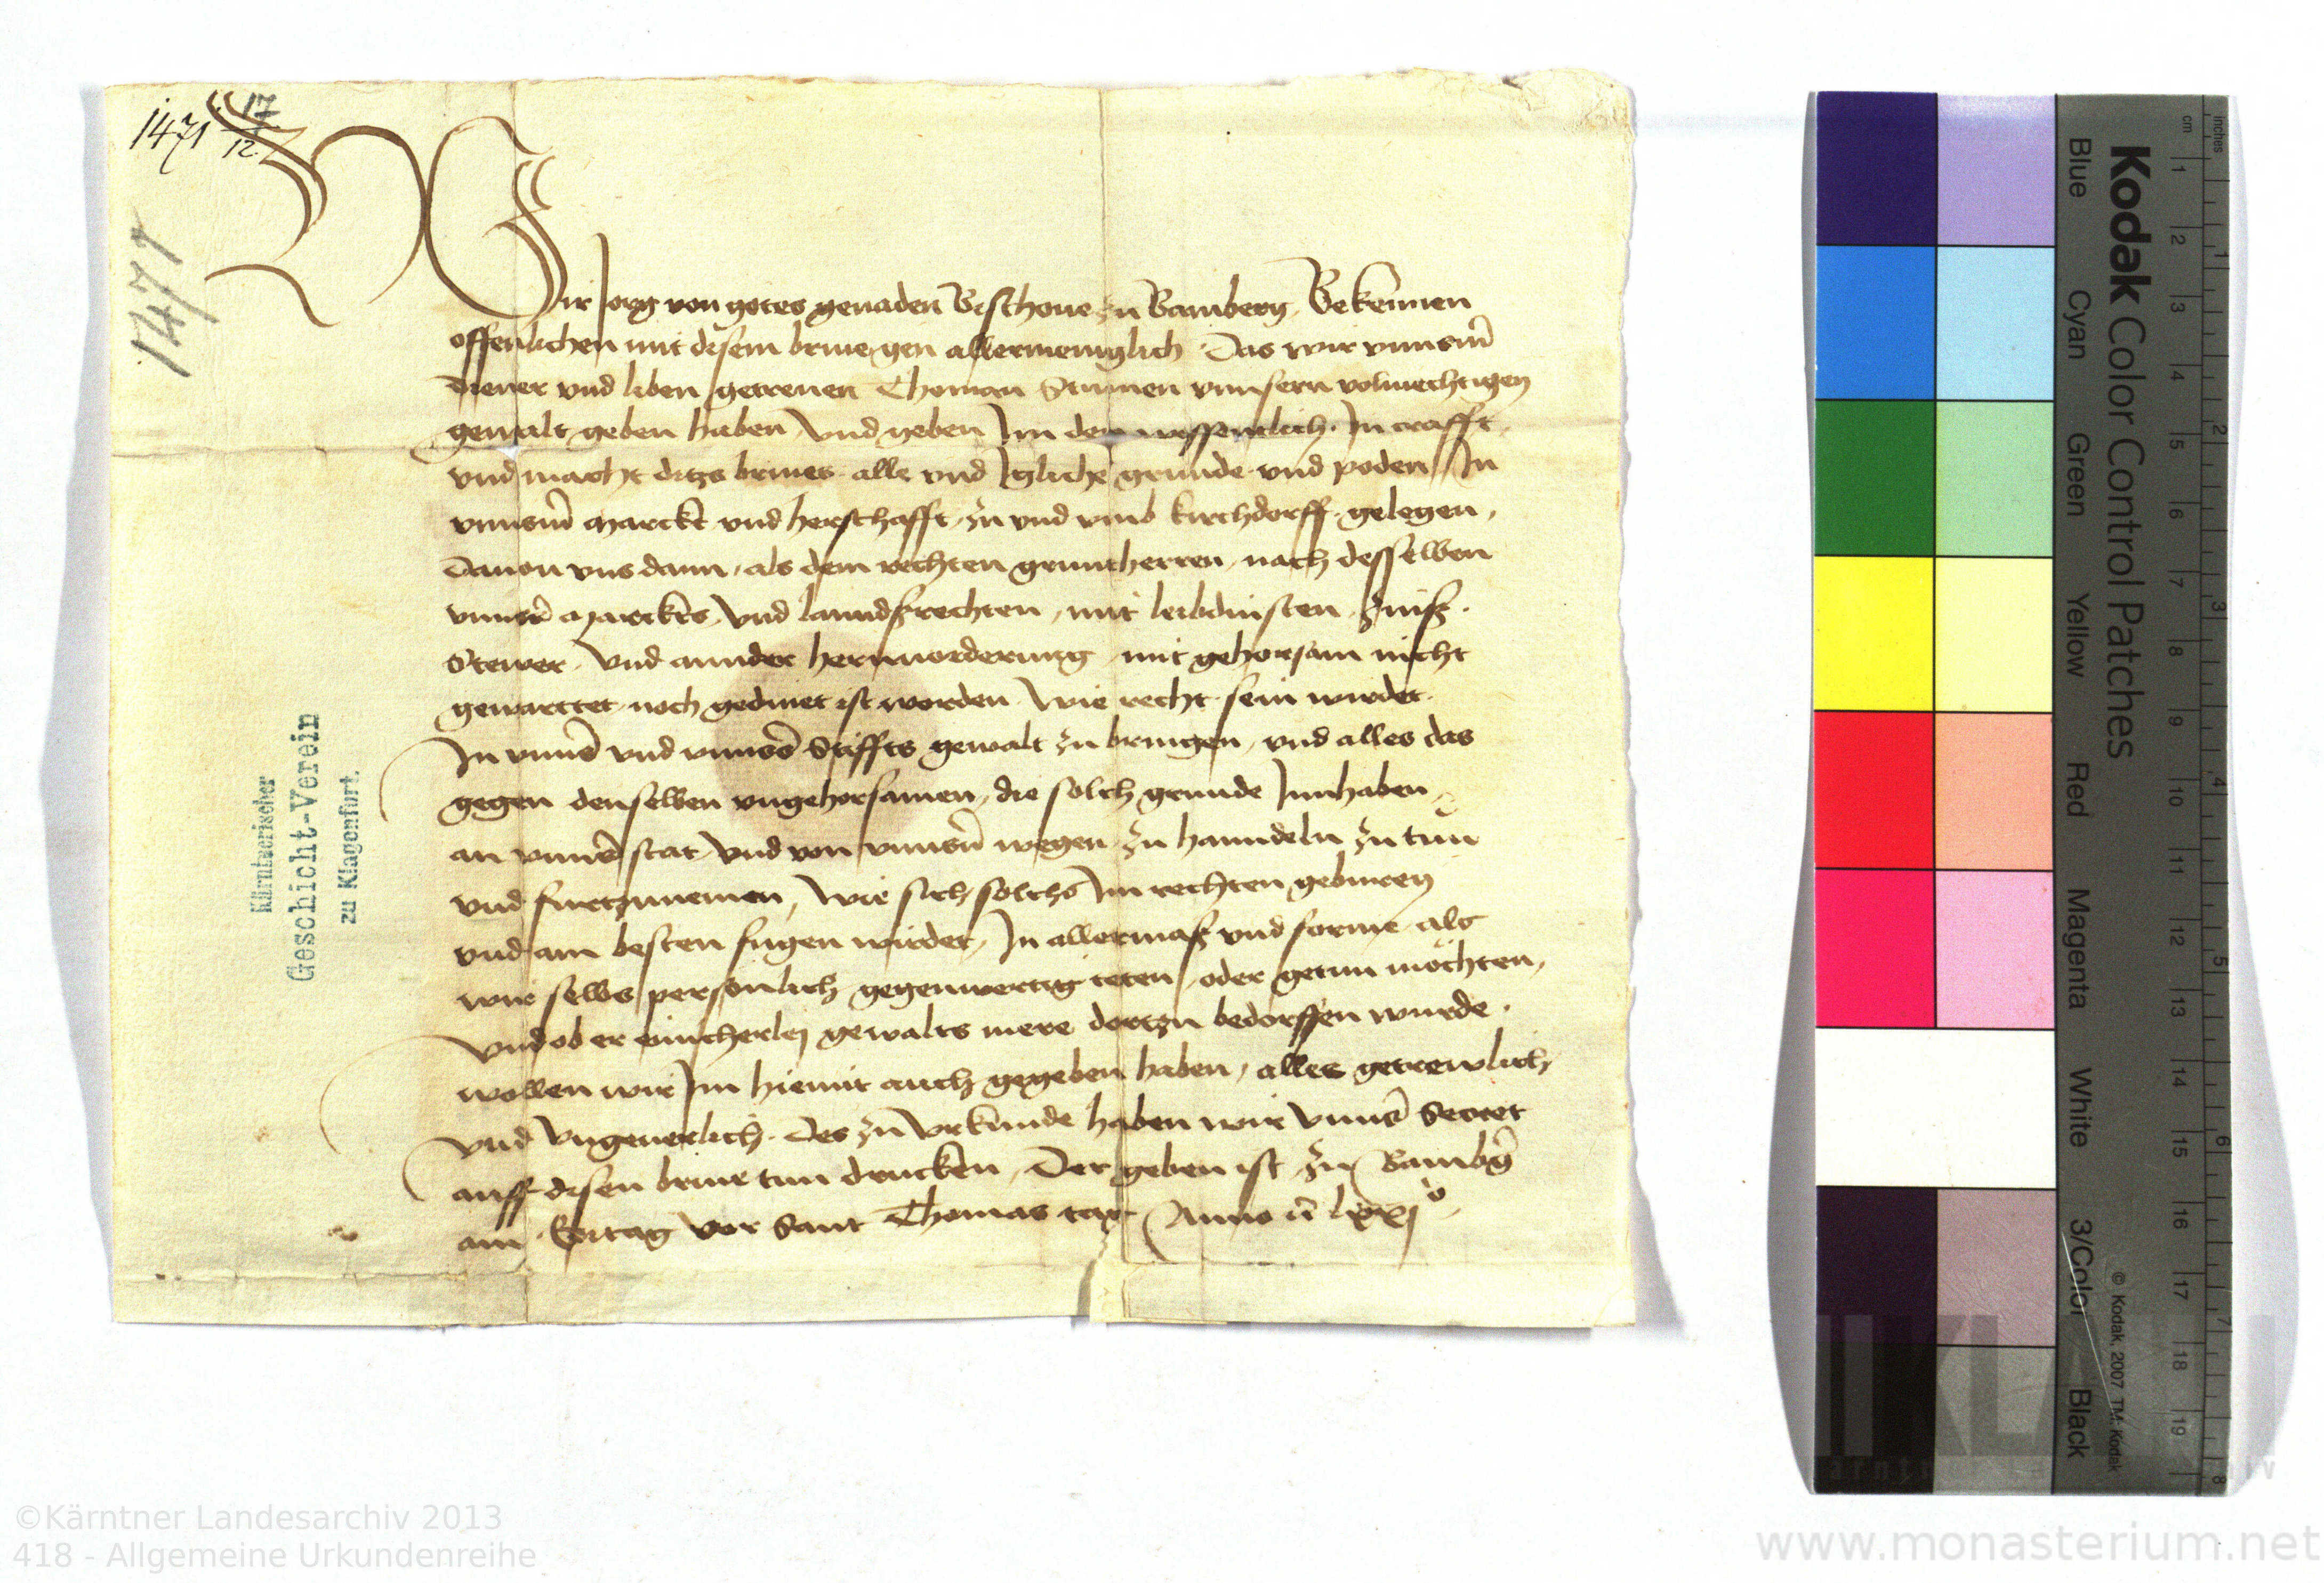 1471 17/12
1471
Wir Jorg von gotes genaden Bischoue zu Bamberg Bekennen
offenlichen mit disem briue gen allermeniglich Das wir vnnserm̄
Diener vnd liben getrewen Thoman vnnsern volmechtigen
gewalt geben haben Vnd geben Im den wissentlich In crafft
vnd macht ditzs briues alle vnd Igliche grunde vnd poden In
vnnserm̄ Marckt vnd herschafft zu vnd vmb kirchdorff gelegen,
Dauon vns dann, als dem rechten gruntherren, nach desselben
vnnsers̄ Marckts Vnd lanndßrechten, mit leibdinsten Zinß.
Stewer. Vnd annder heruorderung mit gehorsam nicht
gewarttet noch gedinet ist worden Wie recht sein wirdet.
In vnnser̄ vnd vnnsers̄ Stiffts gewalt zu bringen, vnd alles das
gegen denselben vngehorsamen, die solch grunde Innhaben,
an vnnser̄ stat Vnd von vnnsern̄ wegen zu hanndeln zu tun
vnd furtzunemen, Wie sich solchs Im rechten geburen
vnd am besten fugen wirdet, In allermaß vnd forme als
wir selbs personlich gegenwertig teten, oder getun möchten,
Vnd ob er einicherley gewalts mere dortzu bedorffen wurde.
wollen wir Im hiemit auch gegeben haben, alles getrewlich
vnd Vngeuerlich. Des zu Vrkunde haben wir Vnnser̄ Secret
auff disen briue tun drucken, Der geben ist zu Bambḡ
am Ertag vor Sant Thomas tag Anno  lxxjo
Kärntnerischer
Geschicht-Verein
zu Klagenfurt.
Kodak Color Control Patches
Blue Cyan Green Yellow Red Magenta White 3/Color Black
© Kodak, 2007 TM: Kodak
inches 1 2 3 4 5 6 7 8
cm 1 2 3 4 5 6 7 8 9 10 11 12 13 14 15 16 17 18 19
©Kärntner Landesarchiv 2013
418 - Allgemeine Urkundenreihe
www.monasterium.net